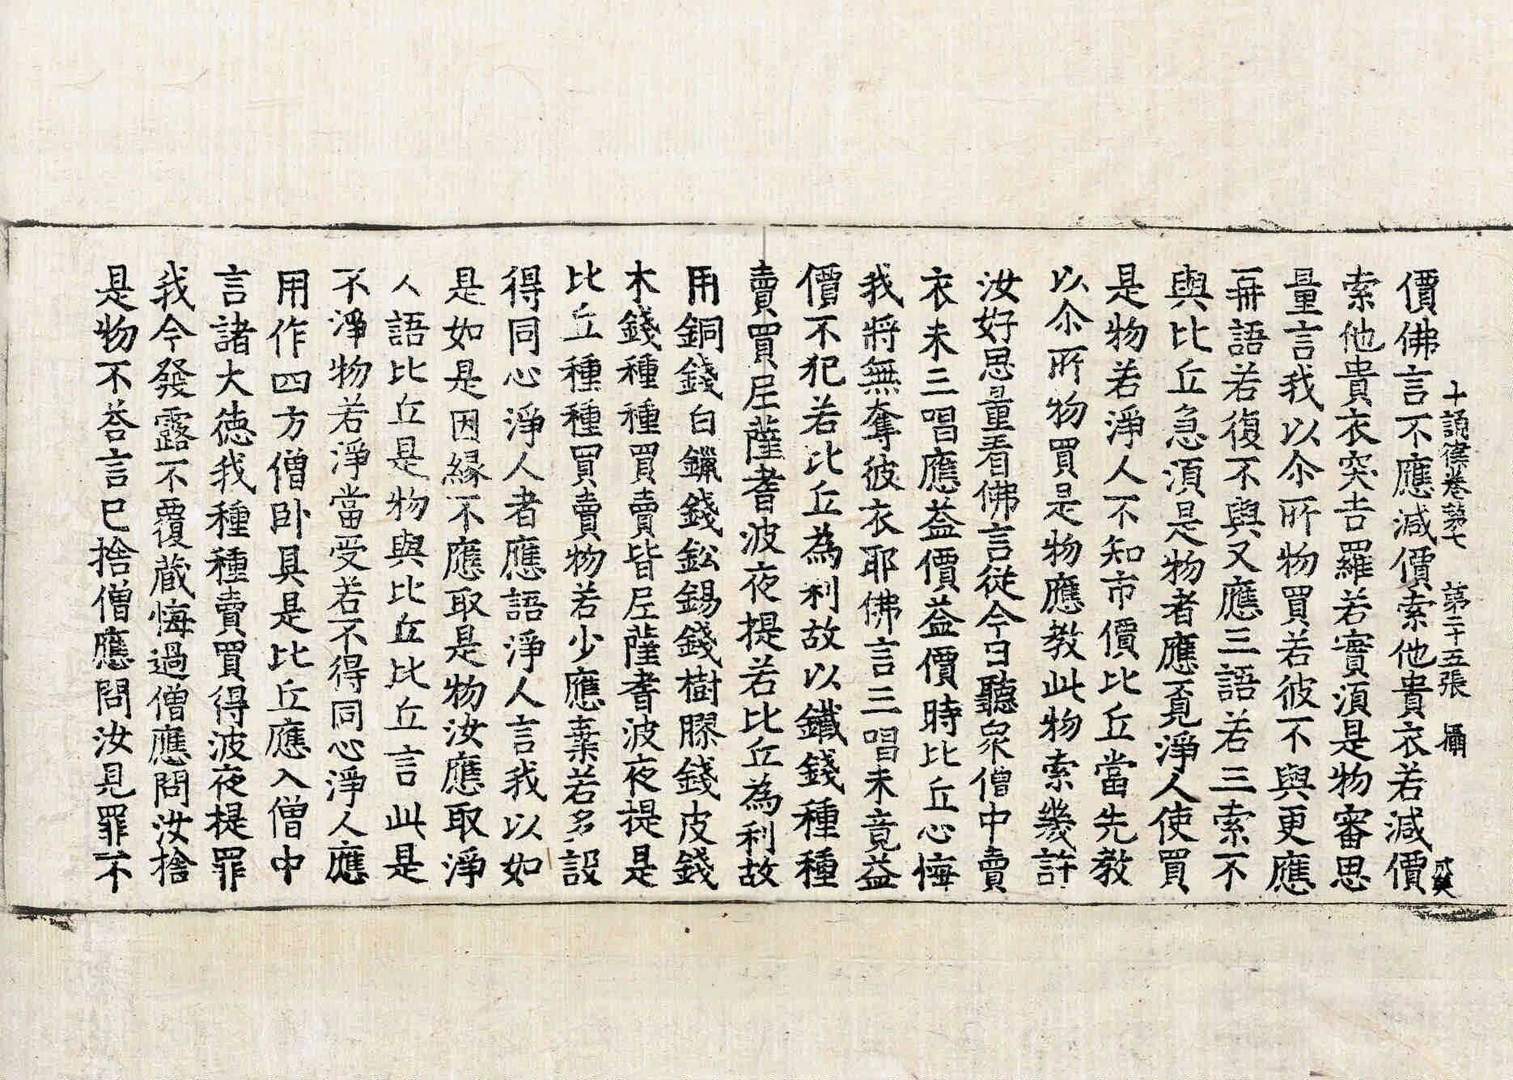 十誦律卷第七　第二十五張　攝
價佛言不應減價索他貴衣若減價
索他貴衣突吉羅若實須是物審思
量言我以尒所物買若彼不與更應
再語若復不與又應三語若三索不
與比丘急須是物者應覔淨人使買
是物若淨人不知市價比丘當先教
以尒所物買是物應教此物索幾許
汝好思量看佛言從今日聽衆僧中賣
衣未三唱應益價益價時比丘心悔
我將無奪彼衣耶佛言三唱未竟益
價不犯若比丘為利故以鐵錢種種
賣買尼薩耆波夜提若比丘為利故
用銅錢白鑞錢鈆錫錢樹膠錢皮錢
木錢種種買賣皆尼薩耆波夜提是
比丘種種買賣物若少應棄若多設
得同心淨人者應語淨人言我以如
是如是因緣不應取是物汝應取淨
人語比丘是物與比丘比丘言此是
不淨物若淨當受若不得同心淨人應
用作四方僧卧具是比丘應入僧中
言諸大德我種種賣買得波夜提罪
我今發露不覆藏悔過僧應問汝捨
是物不荅言已捨僧應問汝見罪不